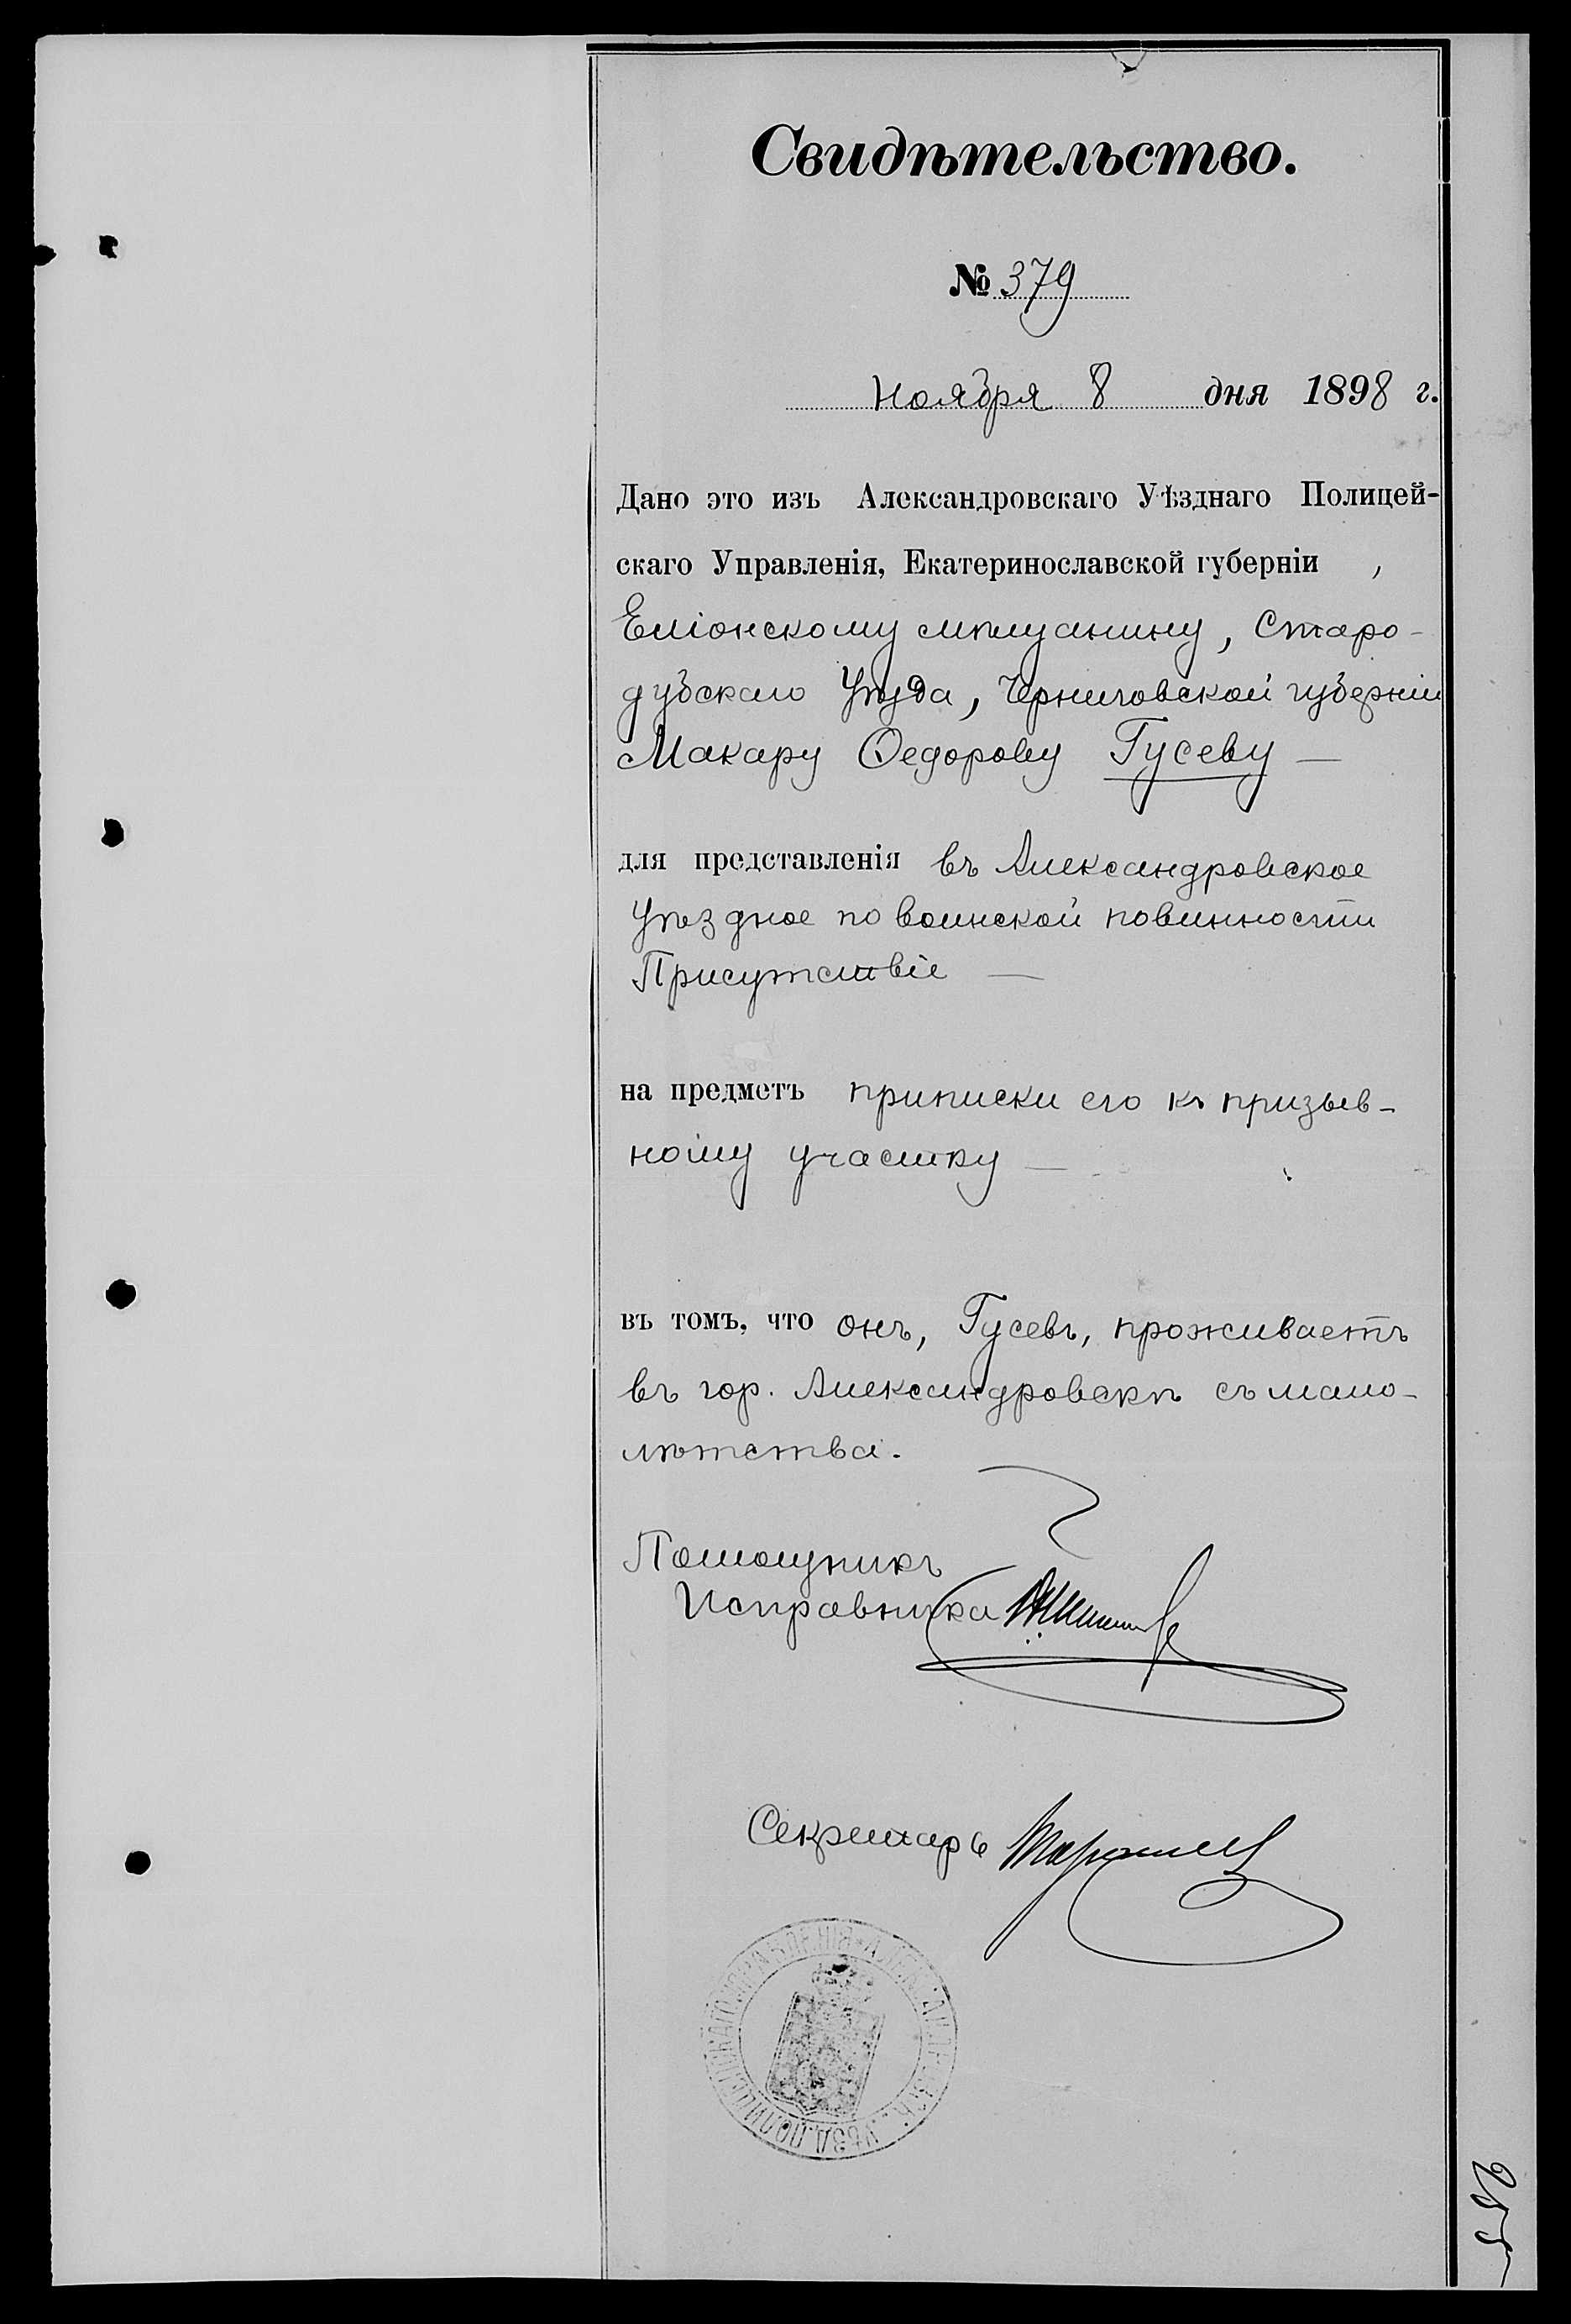 Свидѣтельство.
№ 379
Ноября 8 дня 1898 г.
Дано это изъ Александровскаго Уѣзднаго Полицей-
скаго Управленія, Екатеринославской губерніи ,
Еліонскому мѣщанину, Старо-
дубскаго Уѣзда, Черниговской губерніи
Макару Ѳедорову Гусеву —
для представленія въ Александровское
Уѣздное по воинской повинности
Присутствіе —
на предметъ приписки его къ призыв-
ному участку —
въ томъ, что онъ, Гусевъ, проживаетъ
въ гор. Александровскѣ съ мало-
лѣтства.
Помощникъ
Исправника
Секретарь
255